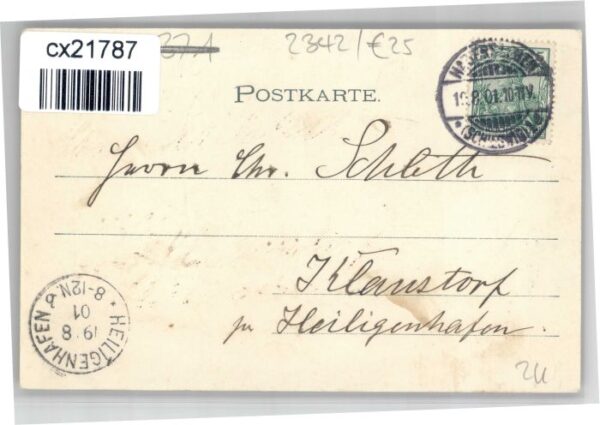 cx21787
37A
2342/€25
POSTKARTE.
19.8.01.10-11V.
(SCHLESWIG)
Herrn Chr. Schleth
Klaustorf
pr Heiligenhafen.
HEILIGENHAFEN
19 8
01
8-12N.